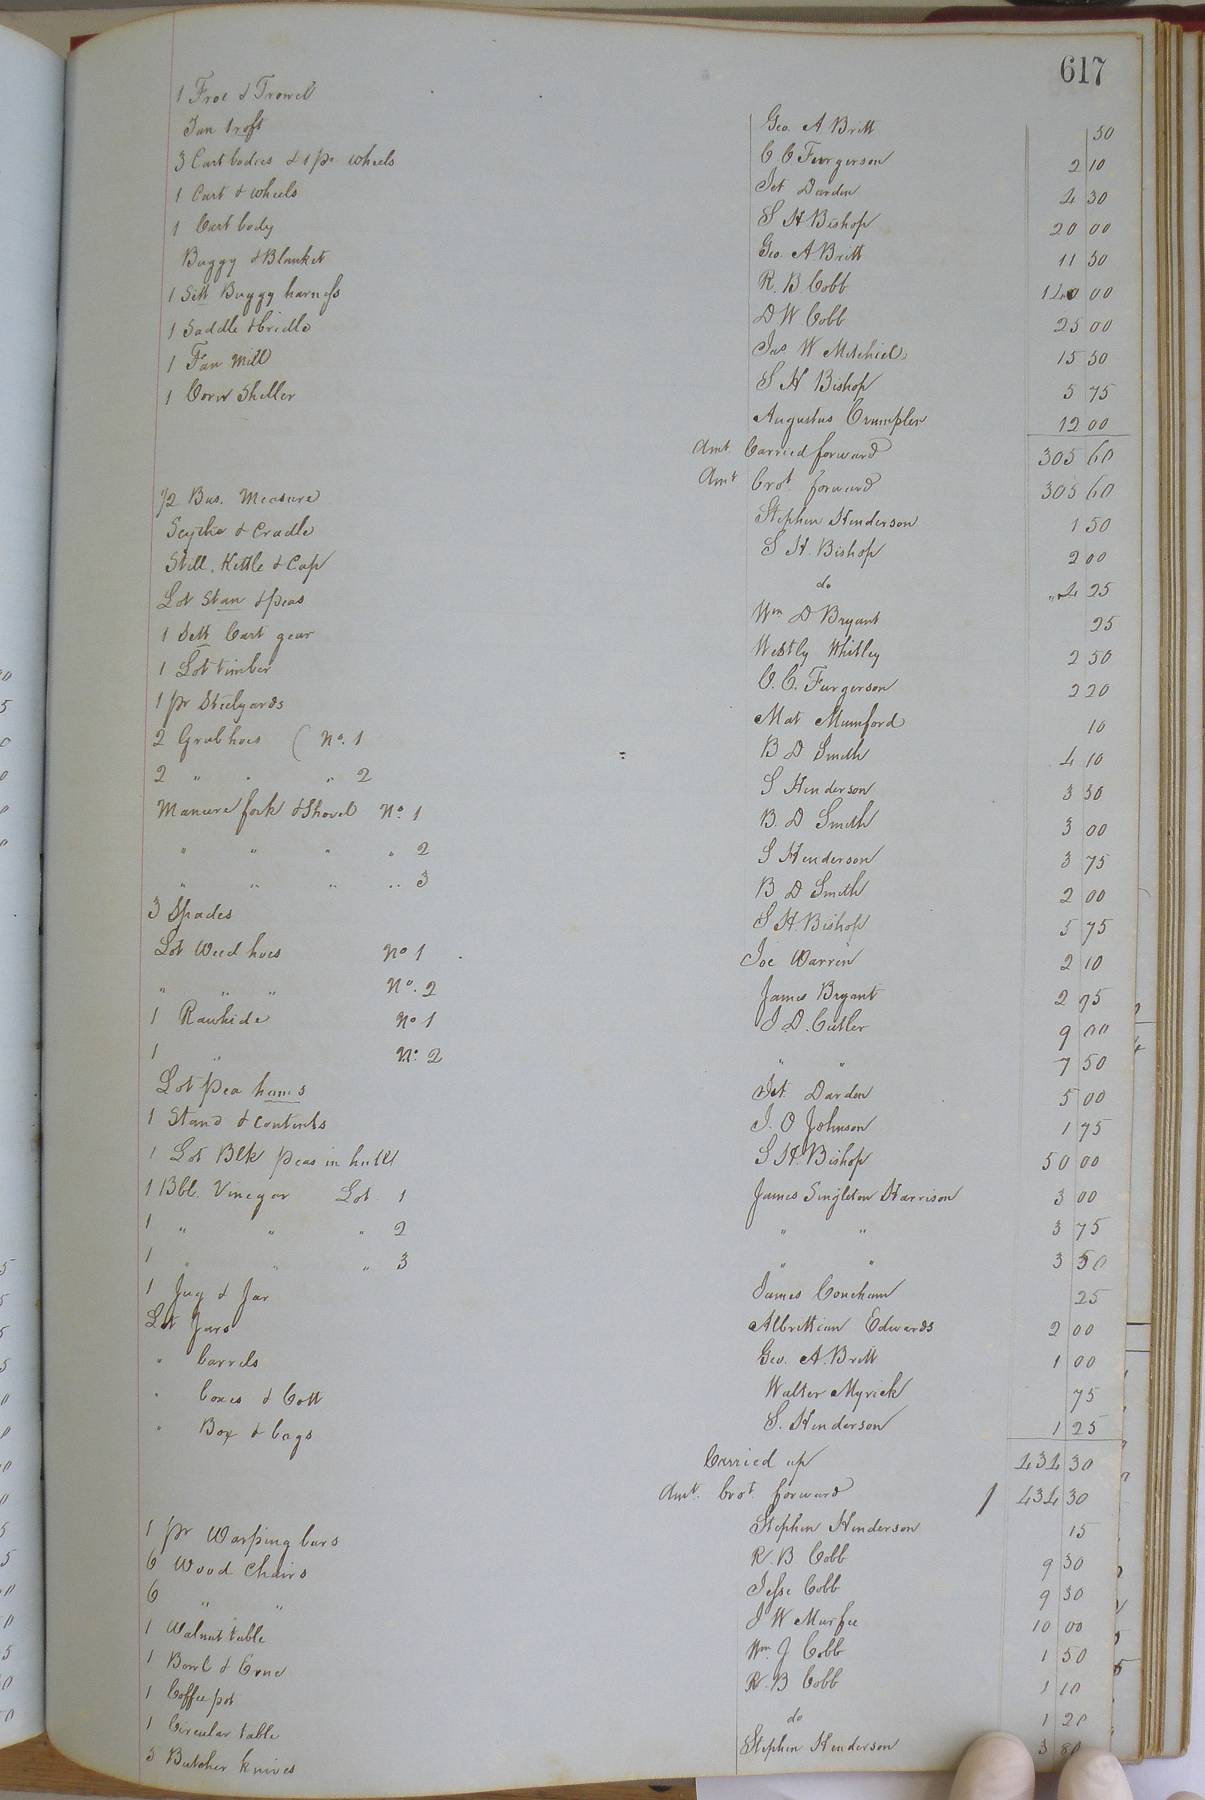 617
1 Froe & Trowel Geo. A Britt 50
Fan 1 roft C C Furgerson 2 10
3 Cart bodies & 1 pr wheels Jet Darden 4 30
1 Cart & wheels S H Bishop 20 00
1 Cart body Geo. A Britt 11 50
Buggy & Blanket R. B Cobb 140 00
1 Sett Buggy harness D W Cobb 25 00
1 Saddle & bridle Jas W Mitchiel 15 50
1 Fan Mill S H Bishop 5 75
1 Corn Sheller Augustus Crumpler 12 00
Amt. Carried forward 305 60
Amt brot. forward 305 60
1/2 Bus. Measure Stephen Henderson 1 50
Scythe & Cradle S H. Bishop 2 00
Still, Kettle & Cap do 4 25
Lot Stan & peas Wm D Bryant 25
1 Sett Cart gear Westly Whitley 2 50
1 Lot timber C. C. Furgerson 2 20
1 pr Steelyards Mat Mumford 10
2 Grubhoes ( No. 1 B D Smith 4 10
2 " " " 2 S Henderson 3 50
Manure fork & Shovel No. 1 B. D Smith 3 00
" " " " 2 S Henderson 3 75
" " " " 3 B D Smith 2 00
3 Spades S H. Bishop 5 75
Lot Weed hoes No 1 Joe Warren 2 10
" " " No. 2 James Bryant 2 75
1 Rawhide No 1 J D. Cutler 9 00
1 " No. 2 " " 7 50
Lot pea hams Jet. Darden 5 00
1 Stand & contents J. O Johnson 1 75
1 Lot Blk peas in hull S H. Bishop 50 00
1 Bbl. Vinegar Lot 1 James Singleton Harrison 3 00
1 " " " 2 " " 3 75
1 " " " 3 " " 3 50
1 Jug & Jar James Concham 25
Lot Jars Albrittian Edwards 2 00
" barrels Geo. A. Britt 1 00
" boxes & Cott Walter Myrick 75
" Box & bags S. Henderson 1 25
Carried up 434 30
Amt. brot. forward 434 30
1 pr Warping bars Stephen Henderson 15
6 Wood Chairs R. B Cobb 9 30
6 " " Jesse Cobb 9 30
1 Walnut table J W Murfee 10 00
1 Bowl & Wm. J Cobb 1 50
1 Coffee pot R. B Cobb 1 10
1 Circular table do 1 20
5 Butcher knives Stephen Henderson 3 80